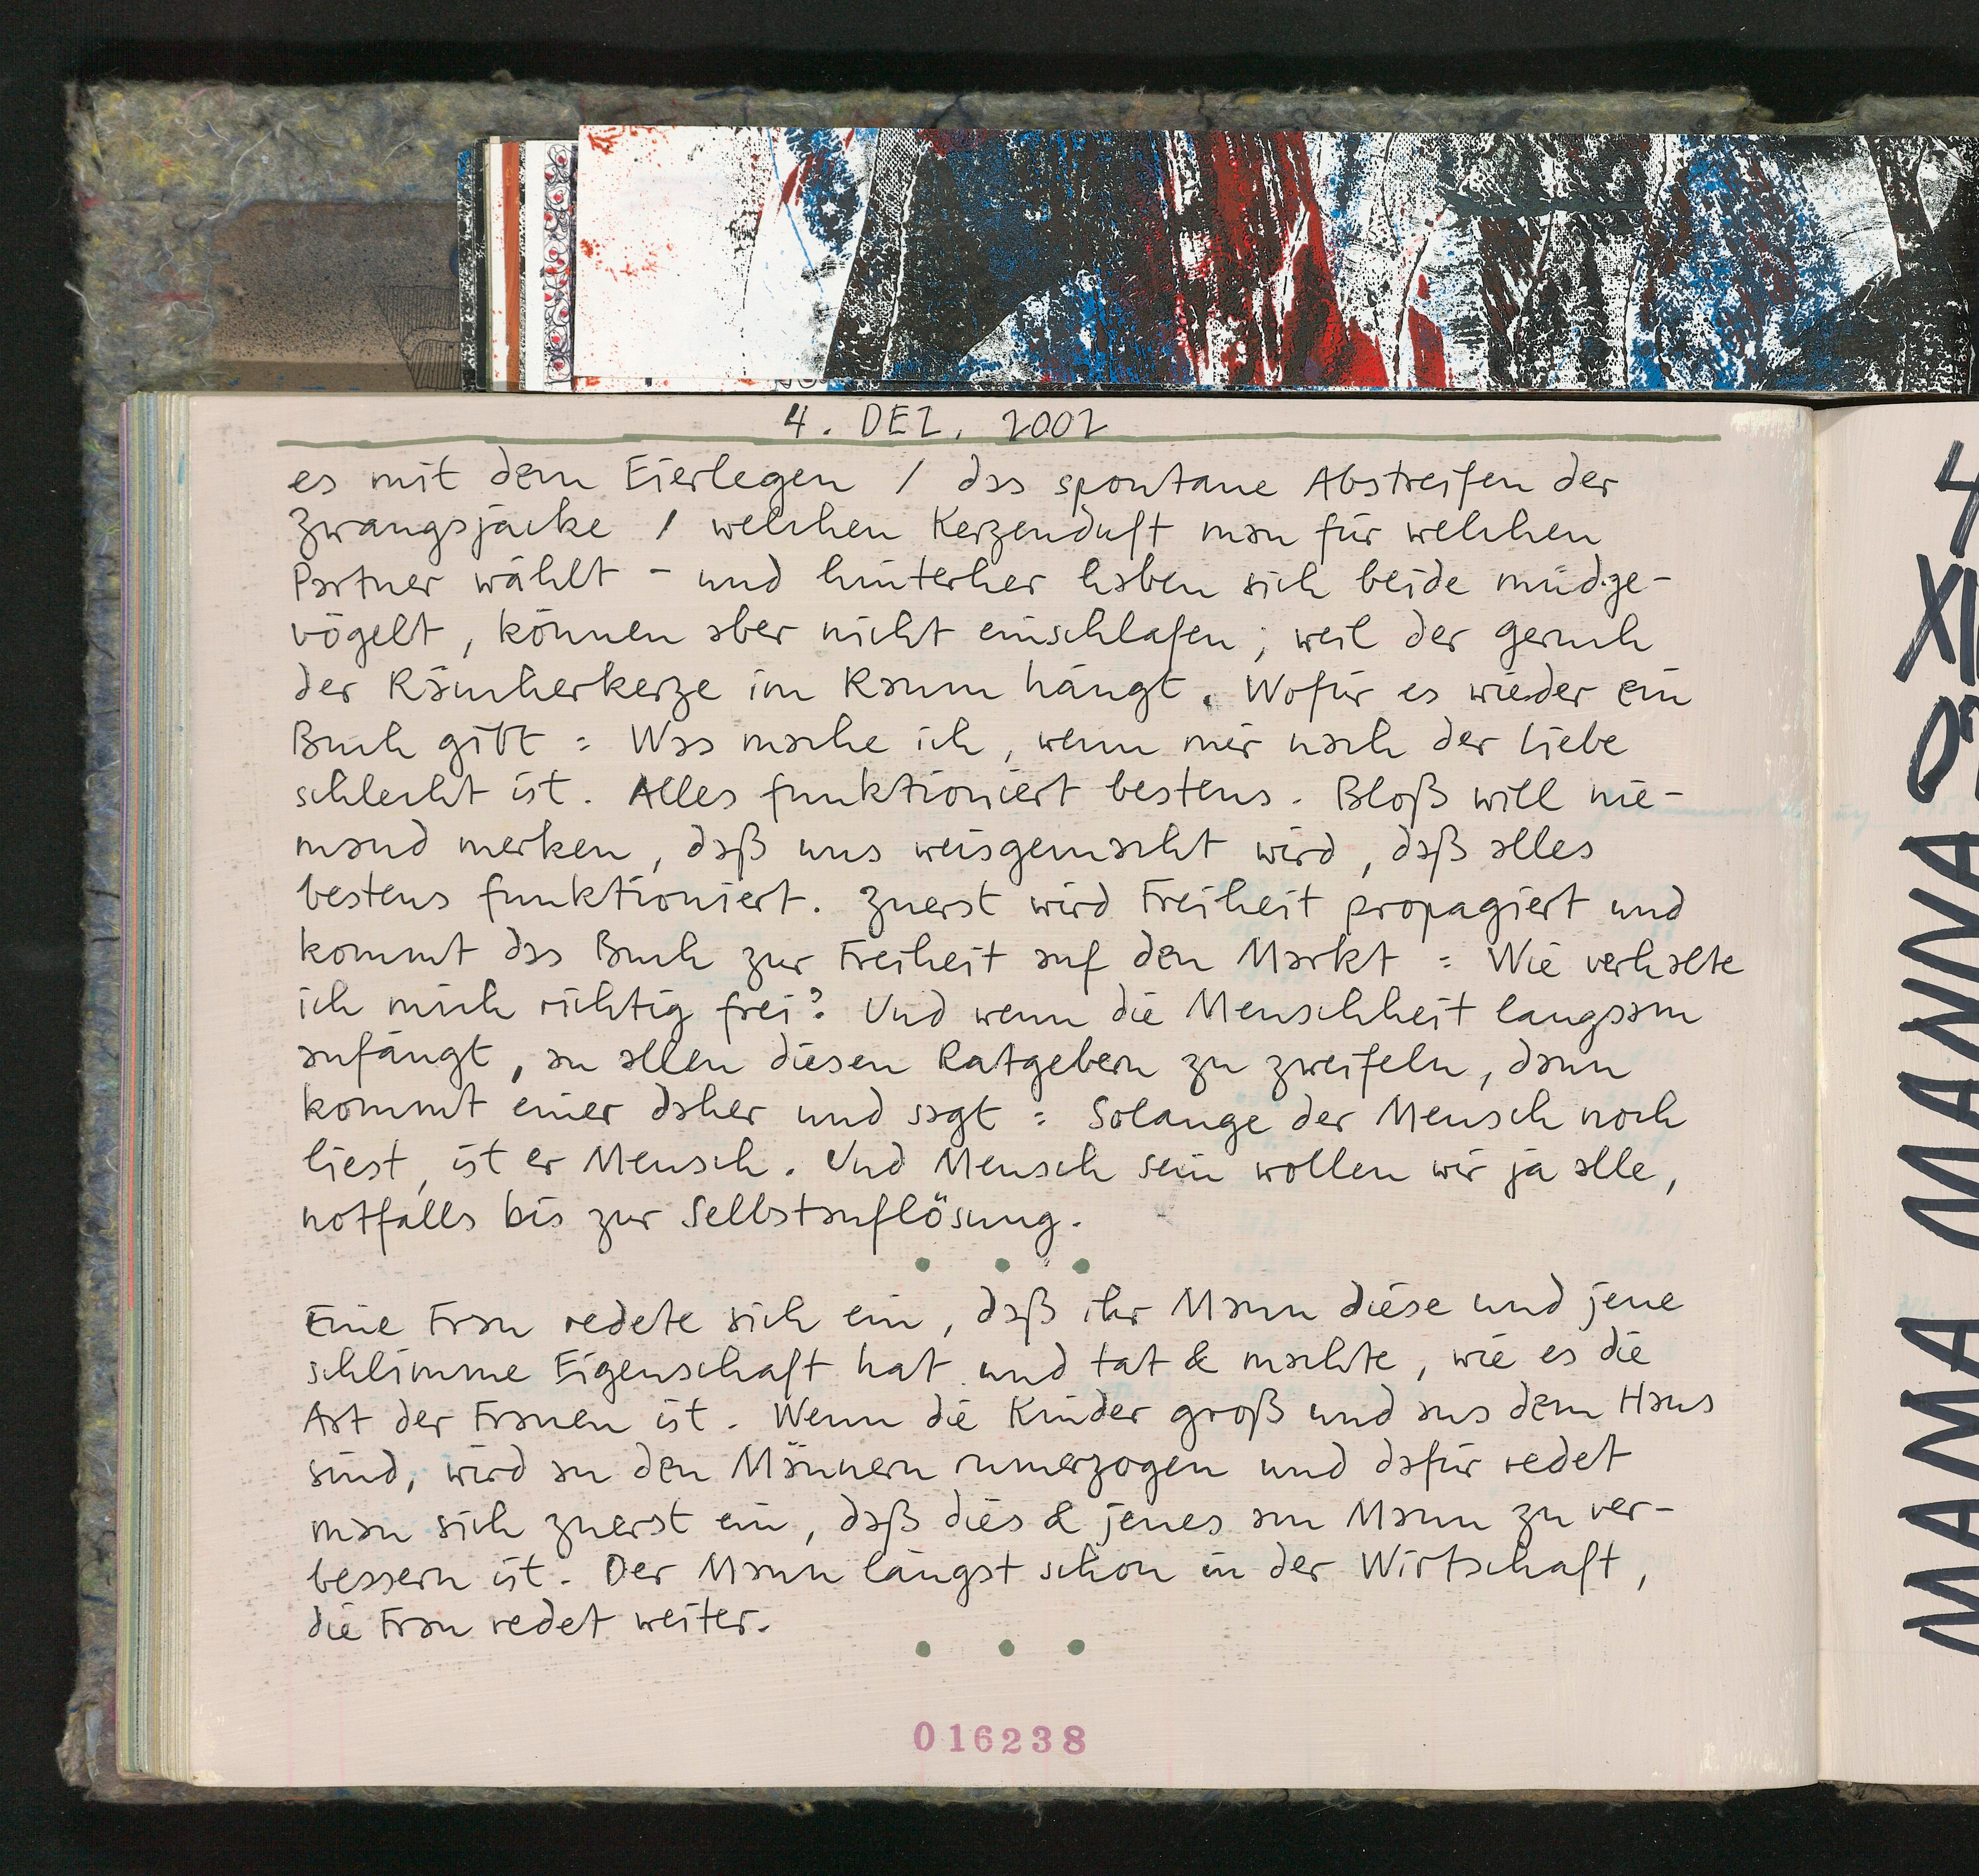 4. DEZ. 2002
es mit dem Eierlegen / das spontane Abstreifen der
Zwangsjacke / welchen Kerzenduft man für welchen
Partner wählt - und hinterher haben sich beide müdge-
vögelt, können aber nicht einschlafen, weil der geruch
der Räucherkerze im Raum hängt. Wofür es wieder ein
Buch gibt: Was mache ich, wenn mir nach der Liebe
schlecht ist. Alles funktioniert bestens. Bloß will nie-
mand merken, daß uns weisgemacht wird, daß alles
bestens funktioniert. Zuerst wird Freiheit propagiert und
kommt das Buch zur Freiheit auf den Markt: Wie verhalte
ich mich richtig frei? Und wenn die Menschheit langsam
anfängt, an allen diesen Ratgebern zu zweifeln, dann
kommt einer daher und sagt: Solange der Mensch noch
liest, ist er Mensch. Und Mensch sein wollen wir ja alle,
notfalls bis zur Selbstauflösung.
• • •
Eine Frau redete sich ein, daß ihr Mann diese und jene
schlimme Eigenschaft hat und tat & machte, wie es die
Art der Frauen ist. Wenn die Kinder groß und aus dem Haus
sind, wird an den Männern rumerzogen und dafür redet
man sich zuerst ein, daß dies & jenes am Mann zu ver-
bessern ist. Der Mann längst schon in der Wirtschaft,
die Frau redet weiter.
• • •
016238
4
MAMA MANNA